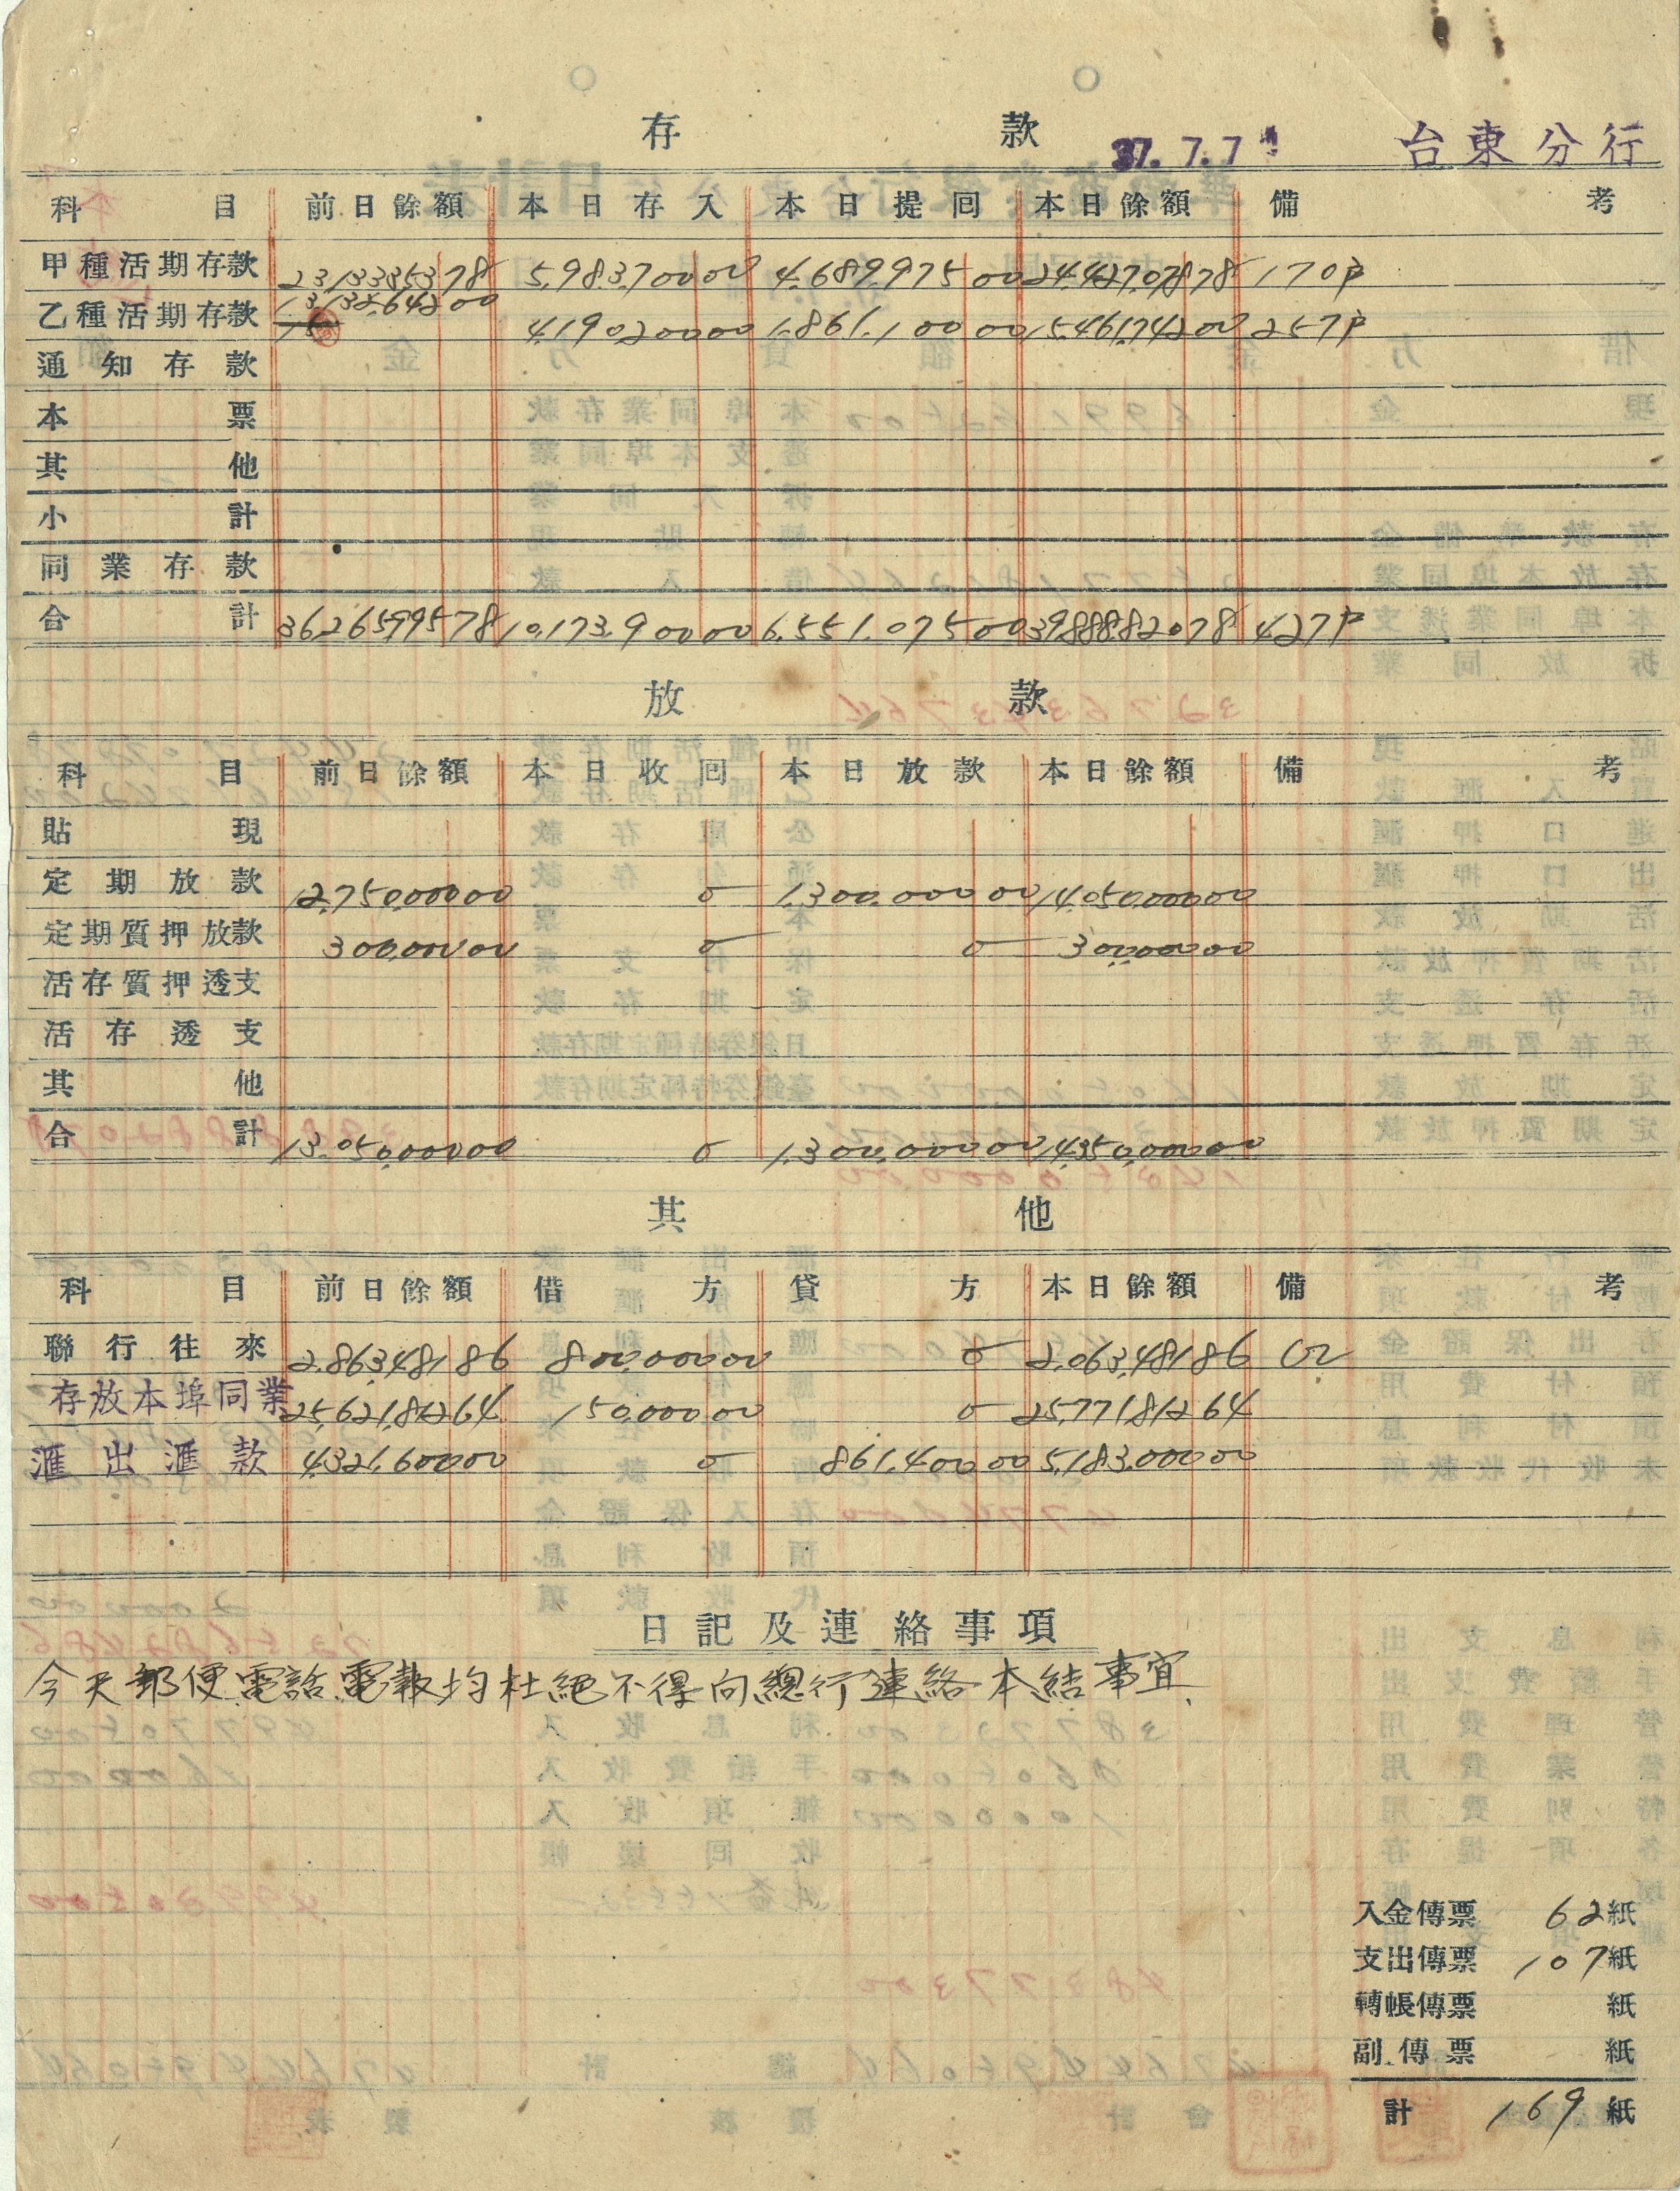 存款 37.7.7 台東分行
科目 前日餘額 本日存入 本日提囘 本日餘額 備考
甲種活期存款 23,133,353 78 5,983,700 00 4,689,975 00 24,427,078 78 170戶
乙種活期存款 13,132,642 00 4,190,200 00 1,861,100 00 15,461,742 00 257戶
通知存款
本票
其他
小計
同業存款
合計 36,265,995 78 10,173,900 00 6,551,075 00 39,888,820 78 427戶
放款
科目 前日餘額 本日收囘 本日放款 本日餘額 備考
貼現
定期放款 12,750,000 00 0 1,300,000 00 14,050,000 00
定期質押放款 300,000 00 0 0 300,000 00
活存質押透支
活存透支
其他
合計 13,050,000 00 0 1,300,000 00 14,350,000 00
其他
科目 前日餘額 借方 貸方 本日餘額 備考
聯行往來 2,863,481 86 800,000 00 0 2,063,481 86 Cr
存放本埠同業 25,621,812 64 150,000 00 0 25,771,812 64
滙出滙款 4,321,600 00 0 861,400 00 5,183,000 00
日記及連絡事項
今天郵便電話電報均杜絕不得向總行連絡本結事宜
入金傳票 62紙
支出傳票 107紙
轉帳傳票 紙
副傳票 紙
計 169紙